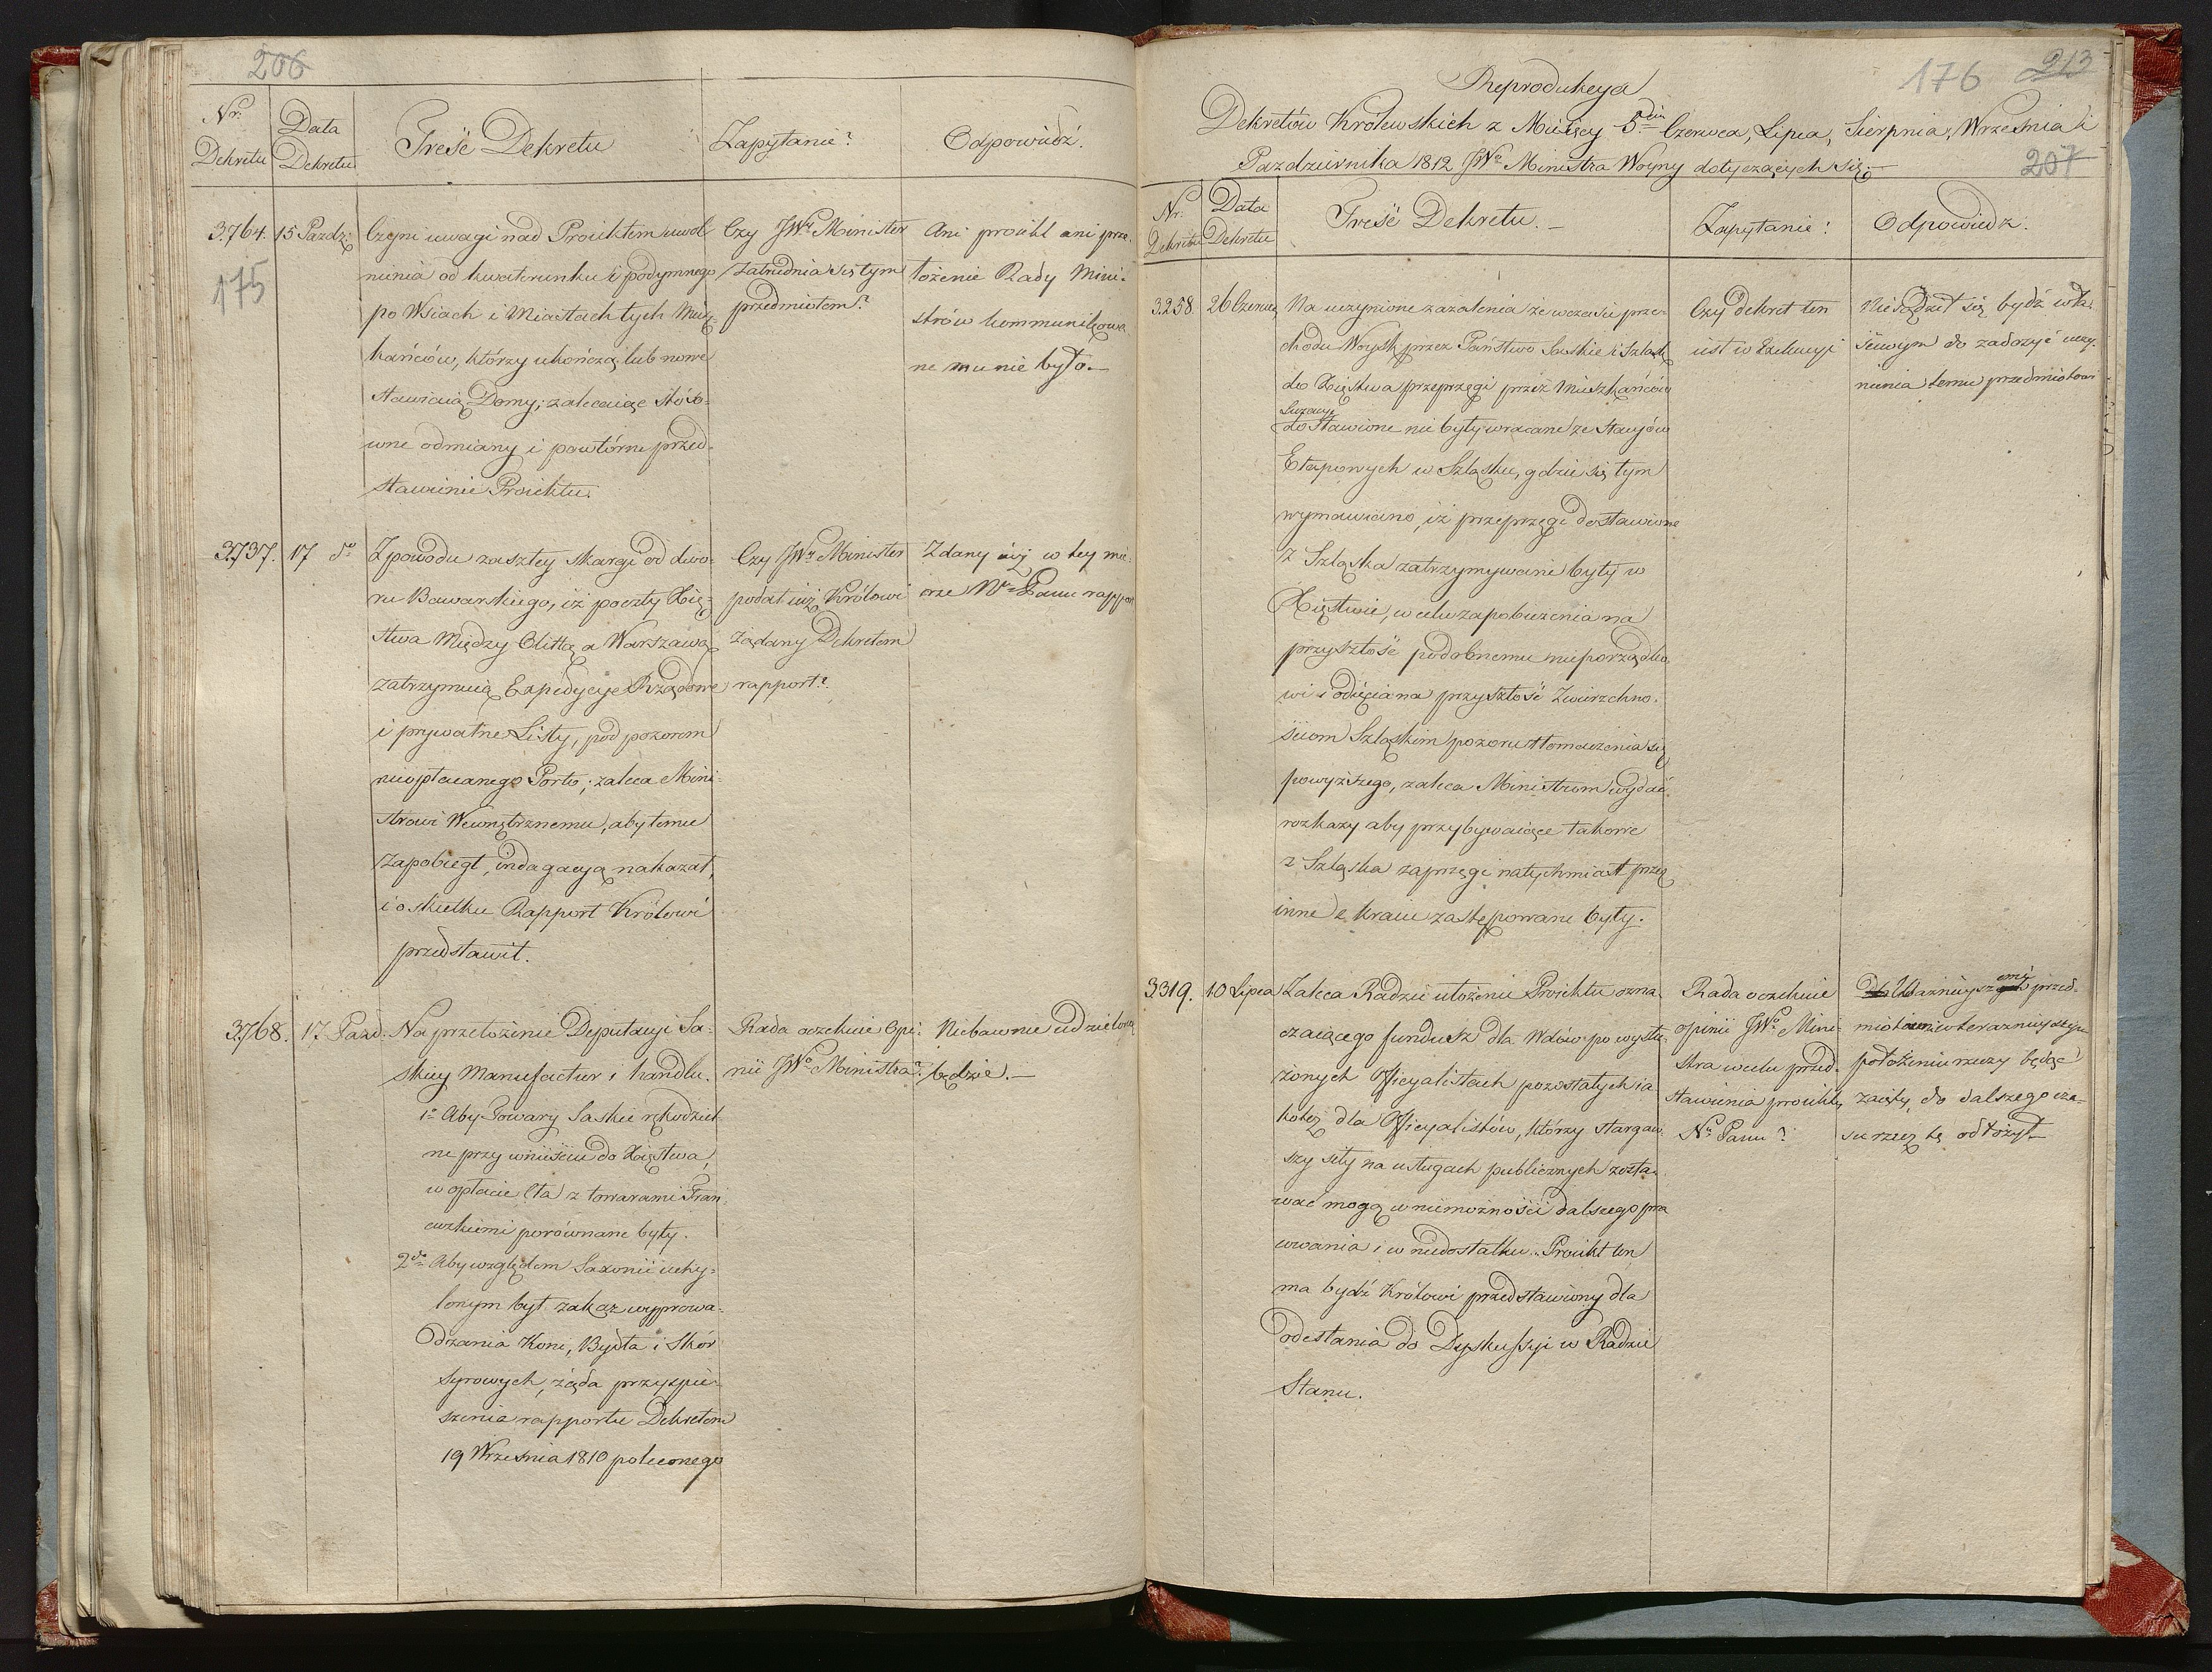 206
Nr.
Dekretu
Data
Dekretu
Treść Dekretu
Zapytanie?
Odpowiedź.
3.764.
15 Pazdz:
175
Czyni uwagi nad Proiektem uwol
nienia od kwaterunku i podymnego
po Wsiach i Miastach tych Miesz-
kańców, którzy ukończą lub nowe
stawiaią Domy; zalecaiąc stóso-
wne odmiany i powtórne przed-
stawienie Proiektu.
Czy JWy Minister
zatrudnia się tym
przedmiotem?
Ani proiekt ani prze-
łożenie Rady Mini-
strów kommunikowa
ne mu nie było.
3737.
17 do
Z powodu zaszłey skargi od dwo-
ru Bawarskiego, iż poczty Xię-
stwa Między Olittą a Warszawą
zatrzymuią Expedycye Rządowe
i prywatne Listy, pod pozorem
nieopłacanego Porto; zaleca Mini-
strowi Wewnętrznemu, aby temu
zapobiegł, indagacyą nakazał,
i o skutku Rapport Królowi
przedstawił.
Czy JWy Minister
podał iuż Królowi
żądany Dekretem
rapport?
Zdany iuż w tey mie-
rze Nu Panu rapport
3768.
17 Pazd:
Na przełożenie Deputacyi Sa-
skiey Manufactur i handlu.
1o Aby Towary Saskie rękodziel
ne przy wniściu do Xięstwa,
w opłacie Cła z towarami Fran
cuzkiemi porównane były.
2do Aby względem Saxonii uchy-
lonym był zakaz wyprowa-
dzania Koni, Bydła i Skór
surowych, żąda przyspie-
szenia rapportu Dekretem
19 Września 1810 poleconego
Rada oczekuie Opi-
nii JWo Ministra?
Niebawnie udzieloną
będzie.
Reprodukcya
176
213
Dekretów Królewskich z Mięsięcy 5ciu Czerwca, Lipca, Sierpnia, Września i
Pazdziernika 1812 JWo Ministra Woyny dotyczących się.
207
Nr.
Dekretu
Data
Dekretu
Treść Dekretu.
Zapytanie?
Odpowiedz.
3.258.
26 Czerwca
Na uczynione zażalenia że w czasie prze-
chodu Woysk przez Państwo Saskie i Szląsk
do Xięstwa przeprzęgi przez Mieszkańców
Luzacyi
dostawione nie były wracane ze Stacyów
Etapowych w Szląsku, gdzie się tym
wymawiano, iż przeprzęgi dostawione
z Szląska zatrzymywane były w
Xięstwie, w celu zapobieżenia na
przyszłość podobnemu nieporządko
wi i odięcia na przyszłość Zwierzchno-
ściom Szląskim pozoru tłomaczenia się
powyższego, zaleca Ministrom wydać
rozkazy aby przybywaiące takowe
z Szląska zaprzęgi natychmiast przez
inne z kraiu zastępowane były.
Czy dekret ten
iest w Exekucyi
Nie sądził się bydź wła-
ściwym do zadosyć uczy-
nienia temu przedmiotowi
3319.
10 Lipca
Zaleca Radzie ułożenie Proiektu ozna-
czaiącego fundusz dla Wdów po wysłu-
żonych Officyalistach pozostałych ia
koteż dla Officyalistów, którzy stargaw-
szy siły na usługach publicznych zosta-
wać mogą w niemożności dalszego pra
cowania i w niedostatku. Proiekt ten
ma bydź Królowi przedstawiony dla
odesłania do Dyskussyi w Radzie
Stanu.
Rada oczekuie
opinii JWo Mini-
stra w celu przed-
stawienia proiektu
Nu Panu?
Ważnieyszemi przed-
miotami w teraznieyszym
położeniu rzeczy będąc
zaięty, do dalszego cza-
su rzecz tę odłożył